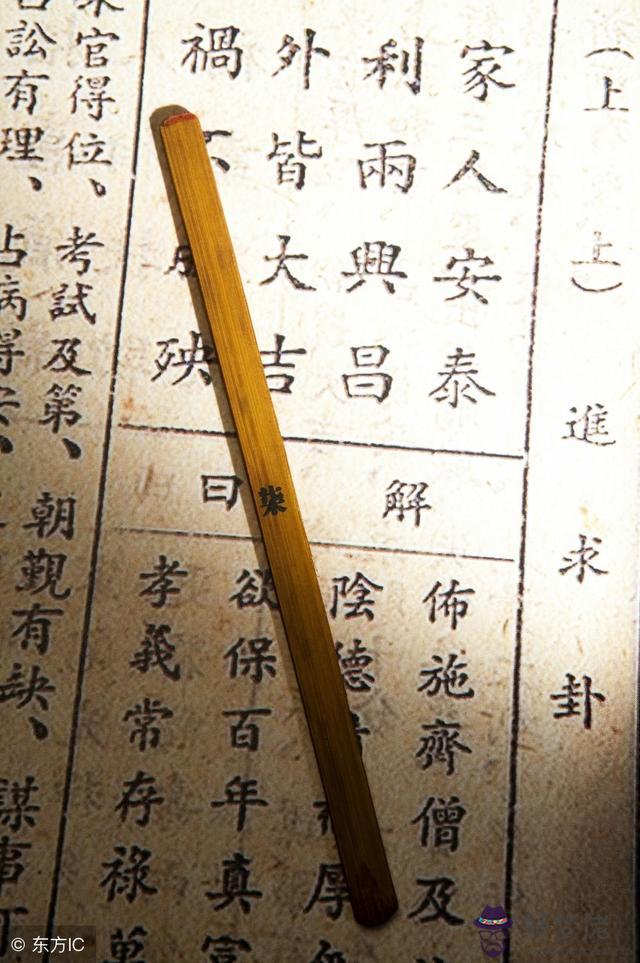 （上上）進求卦
家人安泰
利兩興昌
外皆大吉
禍殃
解曰
佈施齊僧及
陰德厚
欲保百年真富
孝義常存祿萬
官得位、考試及第、朝覲有缺、謀事
訟有理、占病得安、
柒
© 东方IC